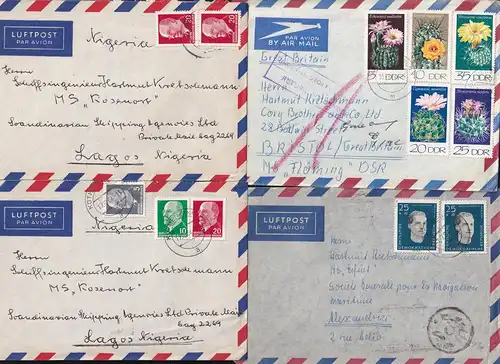 LUFTPOST
PAR AVION
20
20
Nigeria
Herrn
Schiffsingenieur Hartmut Kretschmann
MS "Rosenort"
Scandinavian Shipping Agencies Ltd
Private Mail bag 2269
Lagos Nigeria
PAR AVION
BY AIR MAIL
Great Britain
DDR
10 DDR
35 DDR
20 DDR
25 DDR
Herrn
Hartmut Kretschmann
Cory Brothers and Co Ltd
Street
BRISTOL Great Britain
MS "Fläming" DSR
LUFTPOST
PAR AVION
10
20
Nigeria
Herrn
Schiffsingenieur Hartmut Kretschmann
MS "Rosenort"
Scandinavian Shipping Agencies Ltd Private Mail
bag 2269
Lagos Nigeria
LUFTPOST
PAR AVION
25
25
Herrn
Hartmut Kretschmann
MS "Erfurt"
Société Generale pour la Navigation
maritime
Alexandrien
2 rue